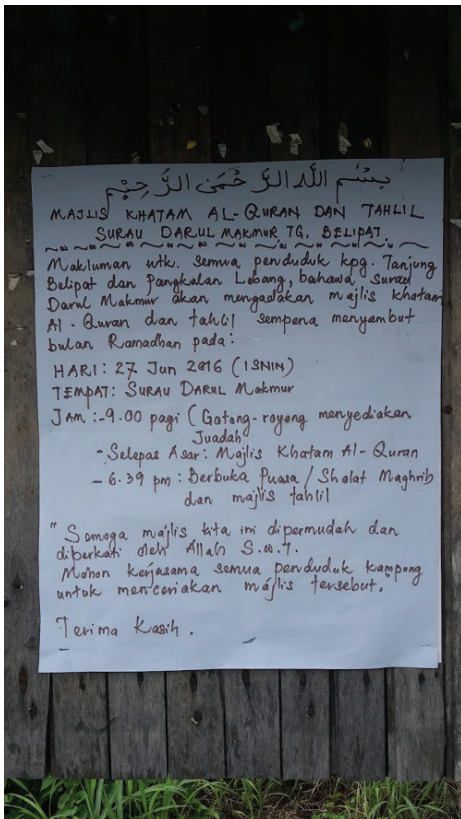 بسم الله الرحمن الرحيم
MAJLIS KHATAM AL-QURAN DAN TAHLIL
SURAU DARUL MAKMUR TG. BELIPAT
Makluman utk. semua penduduk kpg. Tanjung
Belipat dan Pangkalan Lobang, bahawa surau
Darul Makmur akan mengadakan majlis khatam
Al-Quran dan tahlil sempena menyambut
bulan Ramadhan pada:
HARI: 27 Jun 2016 (ISNIN)
TEMPAT: SURAU DARUL Makmur
JAM :-9.00 pagi (Gotong-royong menyediakan
Juadah
-Selepas Asar: Majlis Khatam Al-Quran
-6.39 pm: Berbuka Puasa / Sholat Maghrib
dan majlis tahlil
"Semoga majlis kita ini dipermudah dan
diberkati oleh Allah S.W.T.
Mohon kerjasama semua penduduk kampong
untuk menceriakan majlis tersebut.
Terima Kasih.